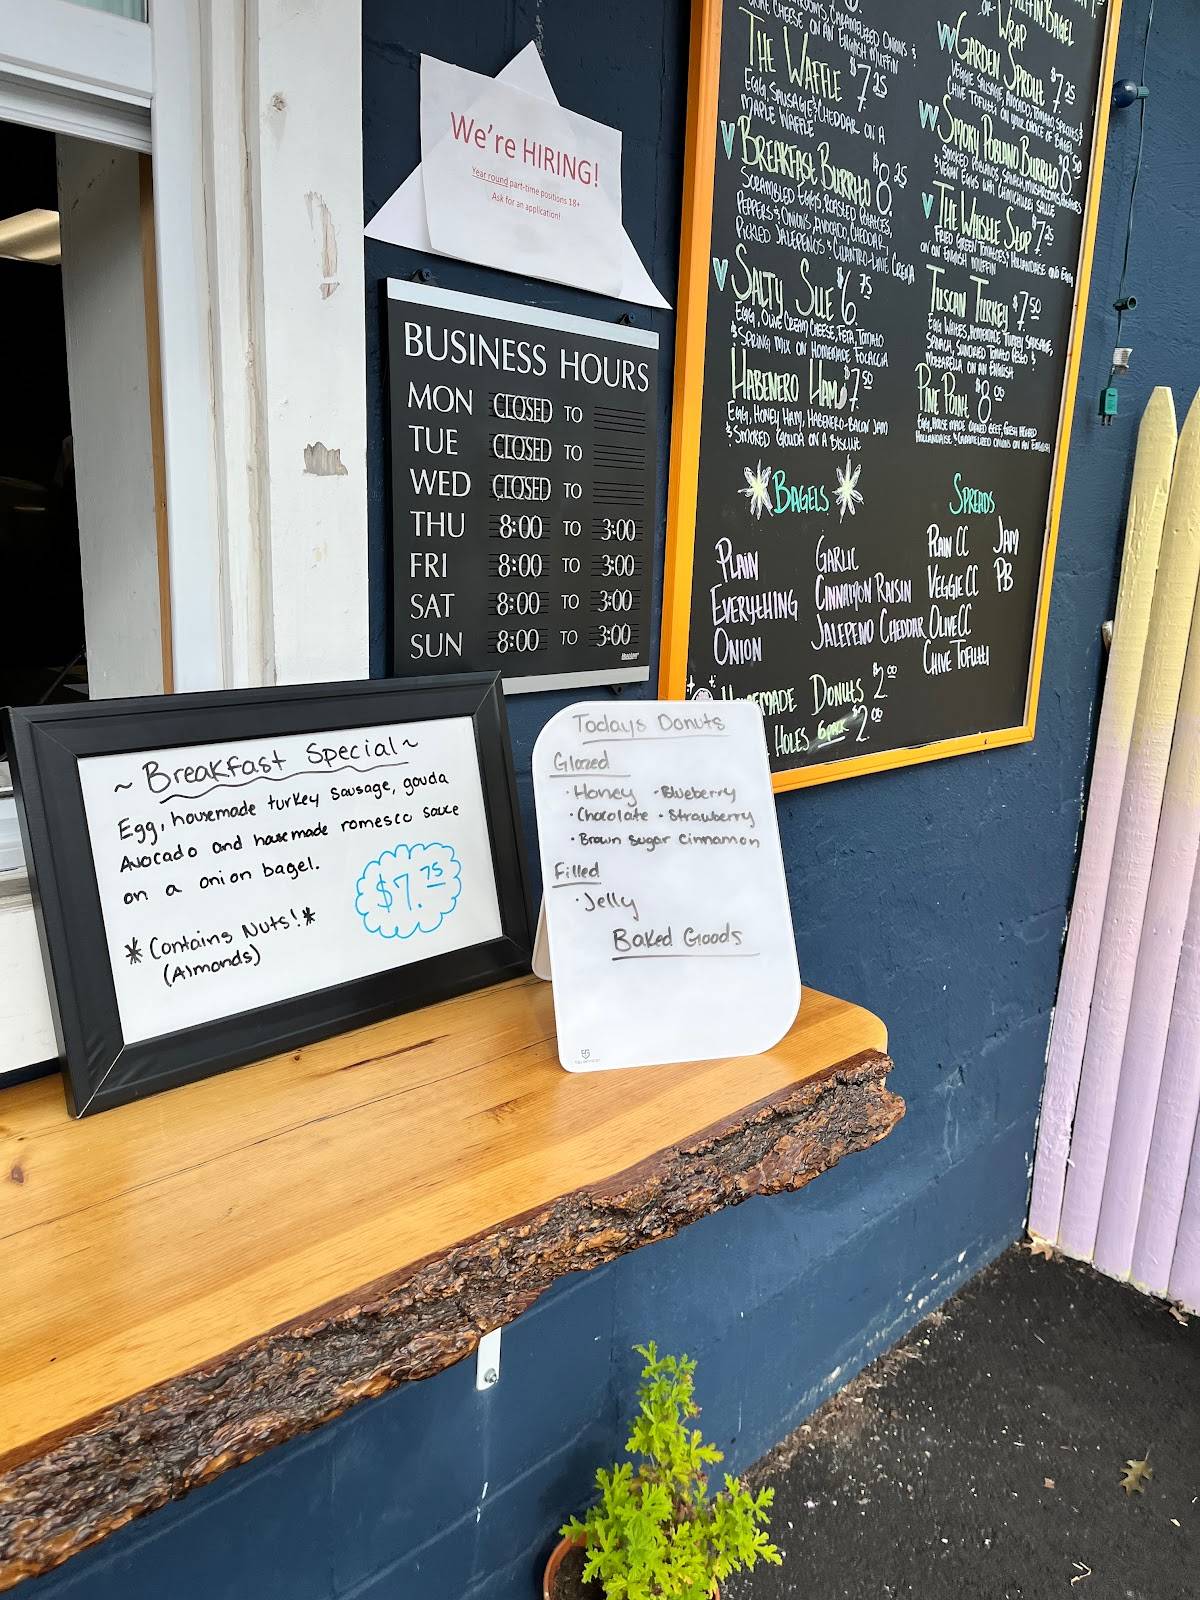 We're HIRING!
Year round part-time positions 18+
Ask for an application!
BUSINESS HOURS
MON CLOSED TO
TUE CLOSED TO
WED CLOSED TO
THU 8:00 TO 3:00
FRI 8:00 TO 3:00
SAT 8:00 TO 3:00
SUN 8:00 TO 3:00
~ Breakfast Special ~
Egg, housemade turkey sausage, gouda
Avocado and housemade romesco sauce
on a onion bagel.
$7.75
*Contains Nuts!*
(Almonds)
Todays Donuts
Glazed
· Honey · Blueberry
· Chocolate · Strawberry
· Brown Sugar Cinnamon
Filled
· Jelly
Baked Goods
CARAMELIZED ONIONS &
CHEESE ON AN ENGLISH MUFFIN
THE WAFFLE $7.25
EGG, SAUSAGE & CHEDDAR ON A
MAPLE WAFFLE
V BREAKFAST BURRITO $8.25
SCRAMBLED EGGS, ROASTED POTATOES,
PEPPERS & ONIONS, AVOCADO, CHEDDAR,
PICKLED JALEPENOS & CILANTRO-LIME CREMA
V SALTY SUE $6.75
EGG, OLIVE CREAM CHEESE, FETA, TOMATO
& SPRING MIX ON HOMEMADE FOCACCIA
HABENERO HAM $7.50
EGG, HONEY HAM, HABENERO-BACON JAM
& SMOKED GOUDA ON A BISCUIT
MUFFIN, BAGEL
OR WRAP
VV GARDEN SPROUT $7.25
VEGGIE SAUSAGE, AVOCADO, TOMATO, SPROUTS &
CHIVE TOFUTTI ON YOUR CHOICE OF BAGEL
VV SMOKY POBLANO BURRITO $8.50
SMOKED POBLANOS, SPINACH, MUSHROOMS, POTATOES
& VEGAN EGGS WITH CHIMICHURRI SALSE
V THE WHISTLE STOP $7.25
FRIED GREEN TOMATOES, HOLLANDAISE AND EGG
ON AN ENGLISH MUFFIN
TUSCAN TURKEY $7.50
EGG WHITES, HOMEMADE TURKEY SAUSAGE,
SPINACH, SUNDRIED TOMATO PESTO &
MOZZARELLA ON AN ENGLISH
PINE POINT $8.00
EGG, HOUSE MADE CORNED BEEF,
HOLLANDAISE & CARAMELIZED ONIONS ON AN ENGLISH
BAGELS
PLAIN
EVERYTHING
ONION
GARLIC
CINNAMON RAISIN
JALEPENO CHEDDAR
SPREADS
PLAIN CC
VEGGIE CC
OLIVE CC
CHIVE TOFUTTI
JAM
PB
HOMEMADE DONUTS $2.00
HOLES 6 PACK $2.00